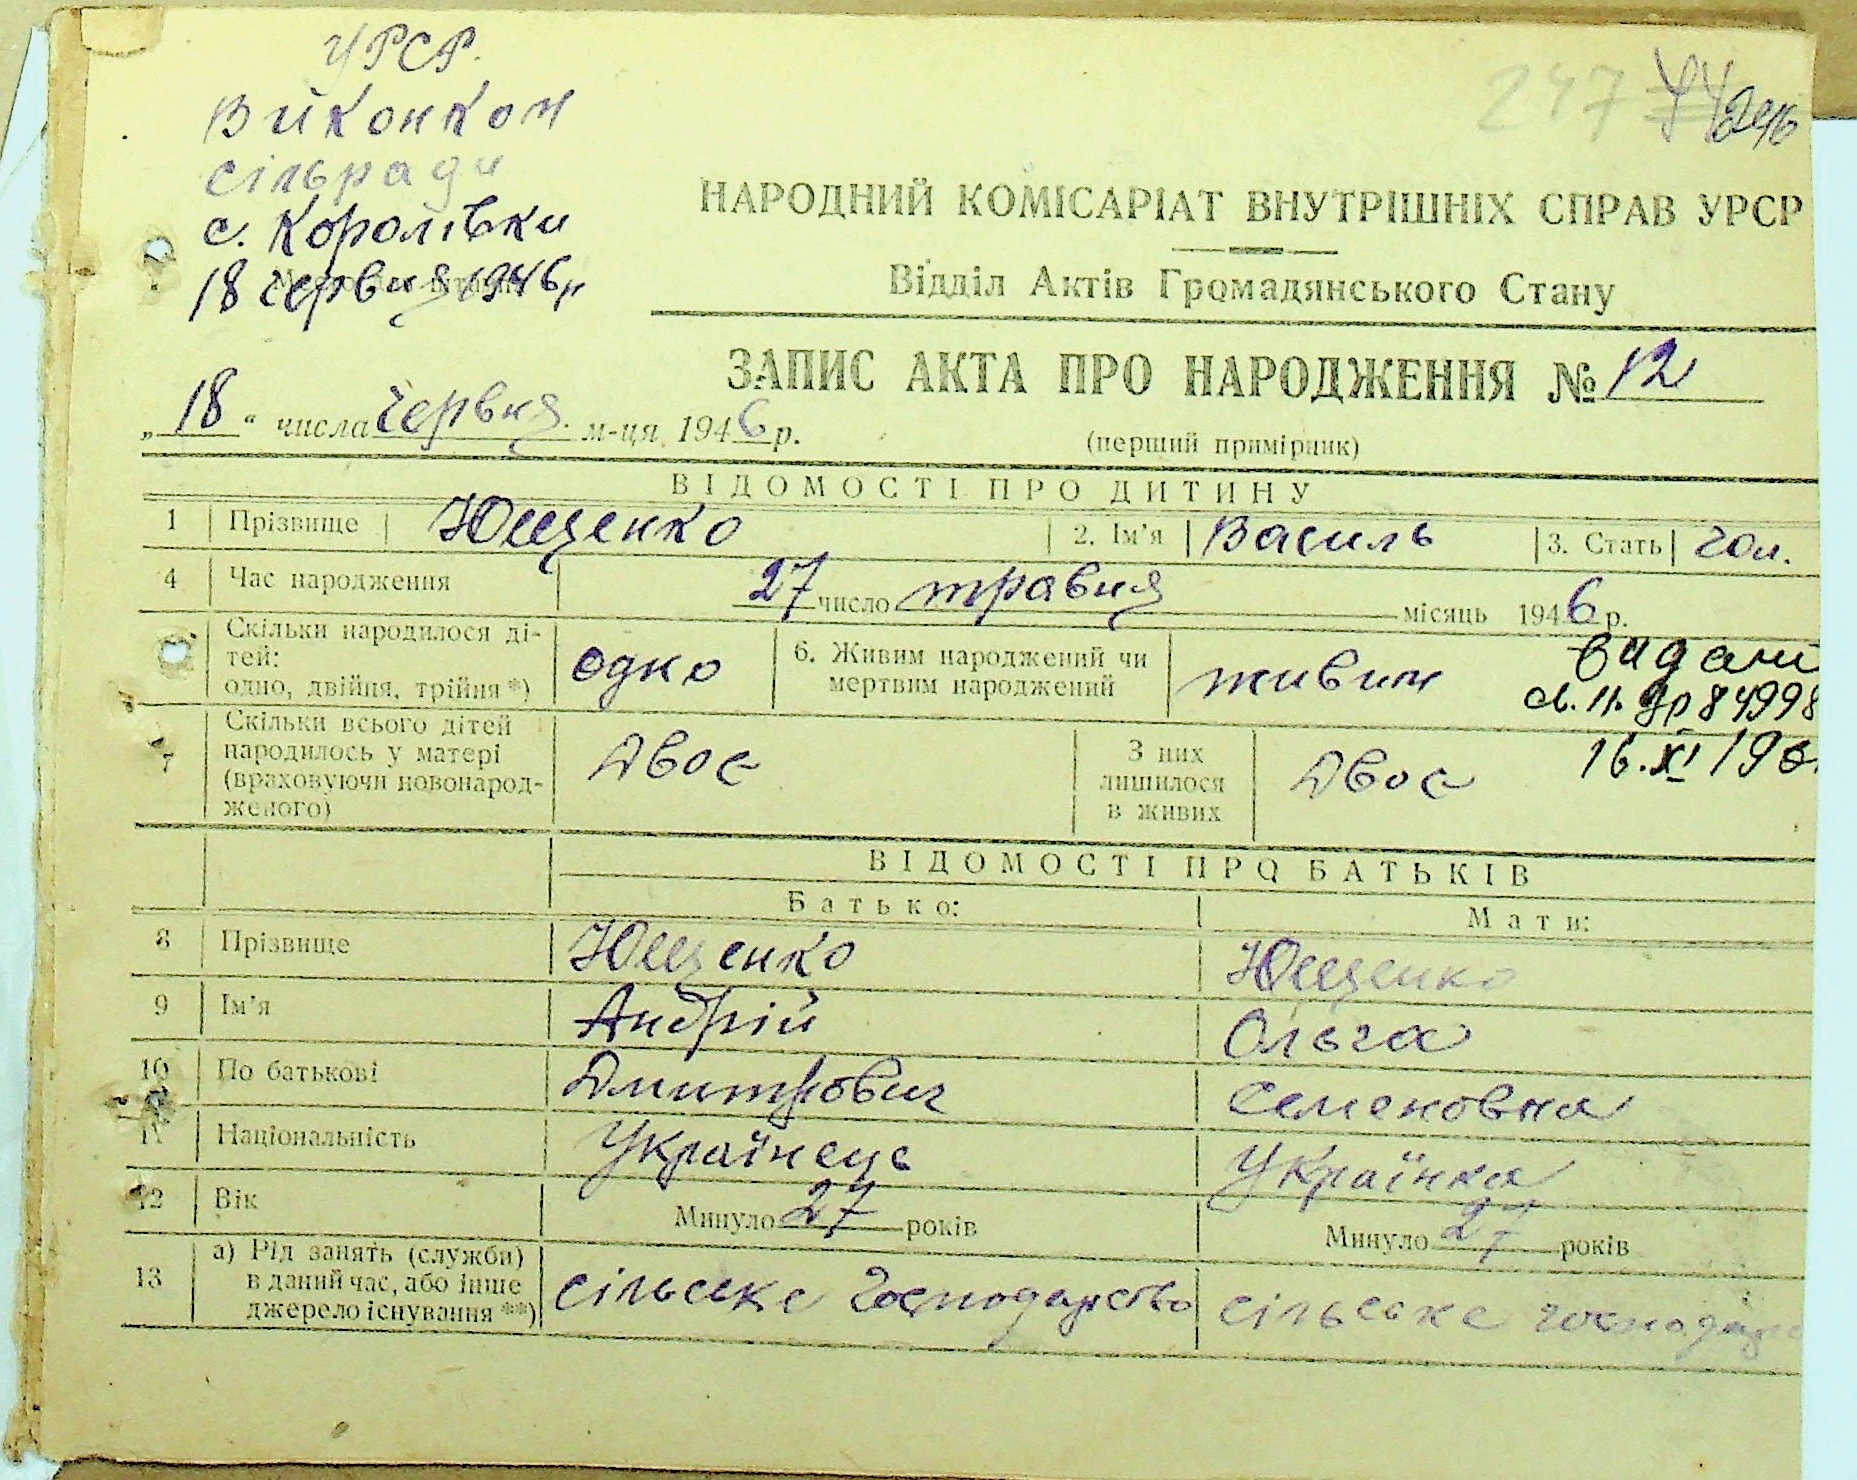 УРСР.
Вйконком
сільради
с. Королівки
18 червня 1946„
247
НАРОДНИЙ КОМІСАРІАТ ВНУТРІШНІХ СПРАВ УРСР
Відділ Актів Громадянського Стану
ЗАПИС АКТА ПРО НАРОДЖЕННЯ № 12
„18“ числа червня. м-ця 1946 р.
(перший примірник)
ВІДОМОСТІ ПРО ДИТИНУ
1 Прізвище Ющенко 2. Ім'я Василь 3. Стать чол.
4 Час народження 27 число травня місяць 1946 р.
Скільки народилося ді-
тей:
одно, двійня, трійня *) одно 6. Живим народжений чи
мертвим народжений живим
видані
16.XI 19
7 Скільки всього дітей
народилось у матері
(враховуючи новонарод-
женого) Двоє З них
лишилося
в живих Двоє
ВІДОМОСТІ ПРО БАТЬКІВ
Батько: Мати:
8 Прізвище Ющенко Ющенко
9 Ім'я Андрій Ольга
10 По батькові Дмитрович Семеновна
11 Національність Українець Українка
12 Вік Минуло 27 років Минуло 27 років
13 а) Рід занять (служби)
в даний час, або інше
джерело існування **) сільське господарство сільське господарс